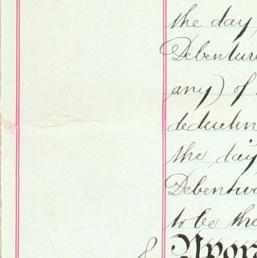 the day
Debenture
any) of
deduction
the day
Debenture
to be the
8 Upon